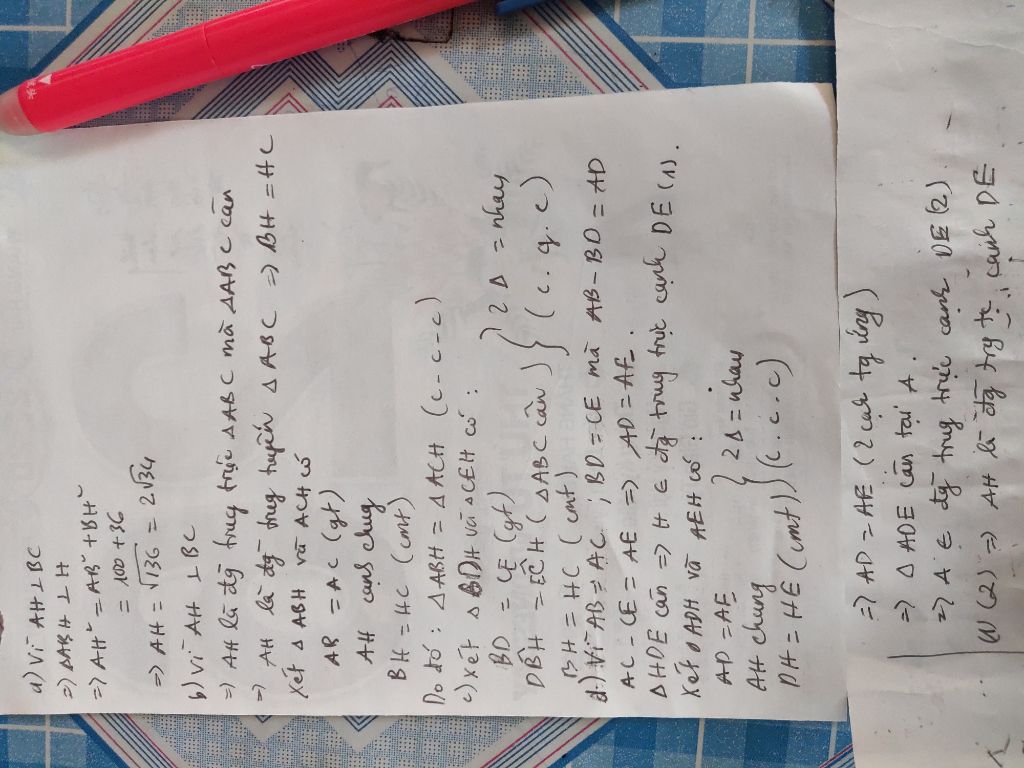 a) Vì AH ⊥ BC
=> ΔABH ⊥ H
=> AH² = AB² + BH²
= 100 + 36
=> AH = √136 = 2√34
b) Vì AH ⊥ BC
=> AH là đg trung trực ΔABC mà ΔABC cân
=> AH là đg trung tuyến ΔABC => BH = HC
Xét ΔABH và ACH có
AB = AC (gt)
AH cạnh chung
BH = HC (cmt)
Do đó: ΔABH = ΔACH (c-c-c)
c) Xét ΔBDH và ΔCEH có:
BD = CE (gt)
DB̂H = EĈH (ΔABC cân)
BH = HC (cmt)
} 2Δ = nhay
(c.g.c)
d) Vì AB = AC; BD = CE mà AB - BD = AD
AC - CE = AE => AD = AE.
ΔHDE cân => H ∈ đg trung trực cạnh DE (1).
Xét ADH và AEH có:
AD = AE
AH chung
DH = HE (cmt)
} 2Δ = nhay
(c.c.c)
=> AD = AE (2 cạh tg ứng)
=> ΔADE cân tại A.
=> A ∈ đg trug trực cạnh DE (2).
(1) (2) => AH là đg trg tr cạnh DE